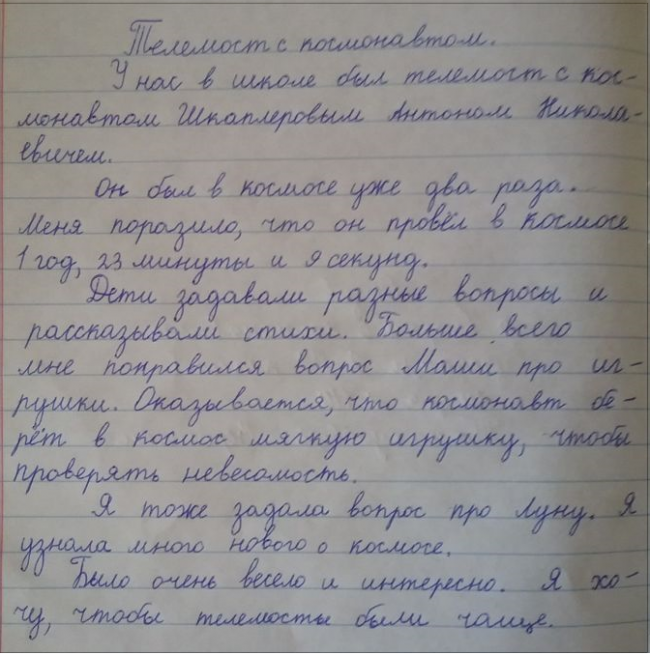 Телемост с космонавтом.
У нас в школе был телемост с кос-
монавтом Шкаплеровым Антоном Никола-
евичем.
Он был в космосе уже два раза.
Меня поразило, что он провёл в космосе
1 год, 23 минуты и 9 секунд.
Дети задавали разные вопросы и
рассказывали стихи. Больше всего
мне понравился вопрос Маши про иг-
рушки. Оказывается, что космонавт бе-
рёт в космос мягкую игрушку, чтобы
проверять невесомость.
Я тоже задала вопрос про Луну. Я
узнала много нового о космосе.
Было очень весело и интересно. Я хо-
чу, чтобы телемосты были чаще.